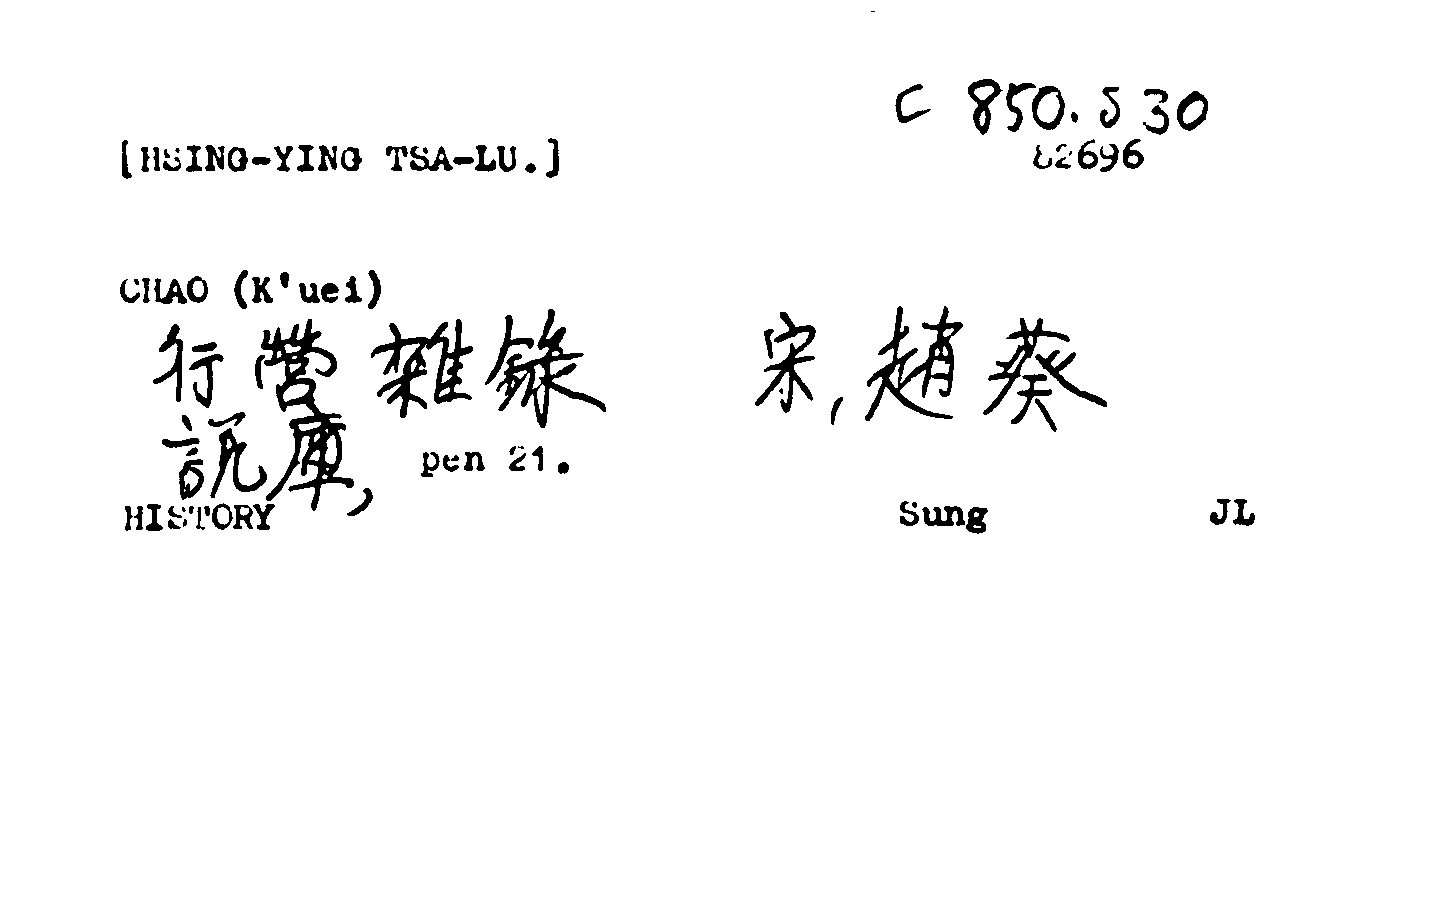 C 850.d 30
82696
[HSING-YING TSA-LU.]
CHAO (K'uei)
行營雜錄 宋,趙葵
說庫, pen 21.
HISTORY Sung JL